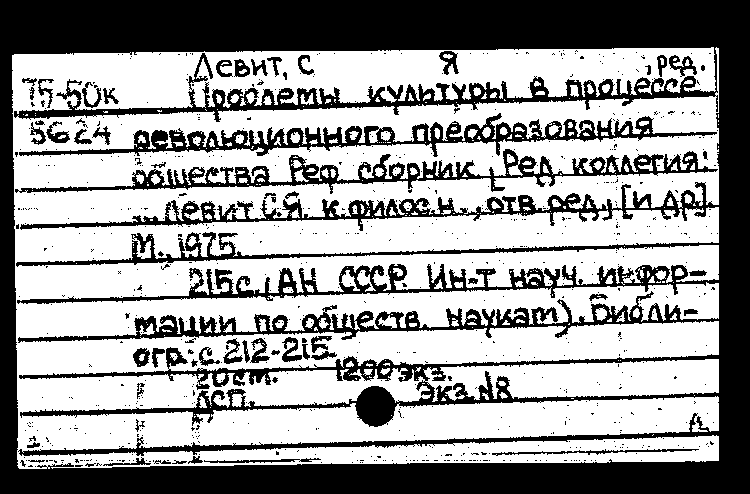 Левит, С Я , ред.
75-50к Проблемы культуры в процессе
5624 революционного преобразования
общества Реф. сборник. [Ред. коллегия:
... Левит С.Я. к.филос.н., отв. ред., [и др.].
М., 1975.
215с. (АН СССР. Ин-т науч. инфор-
мации по обществ. наукам). Библи-
огр.: с. 212-215.
20см. 1200 экз.
ДСП. Экз. №8